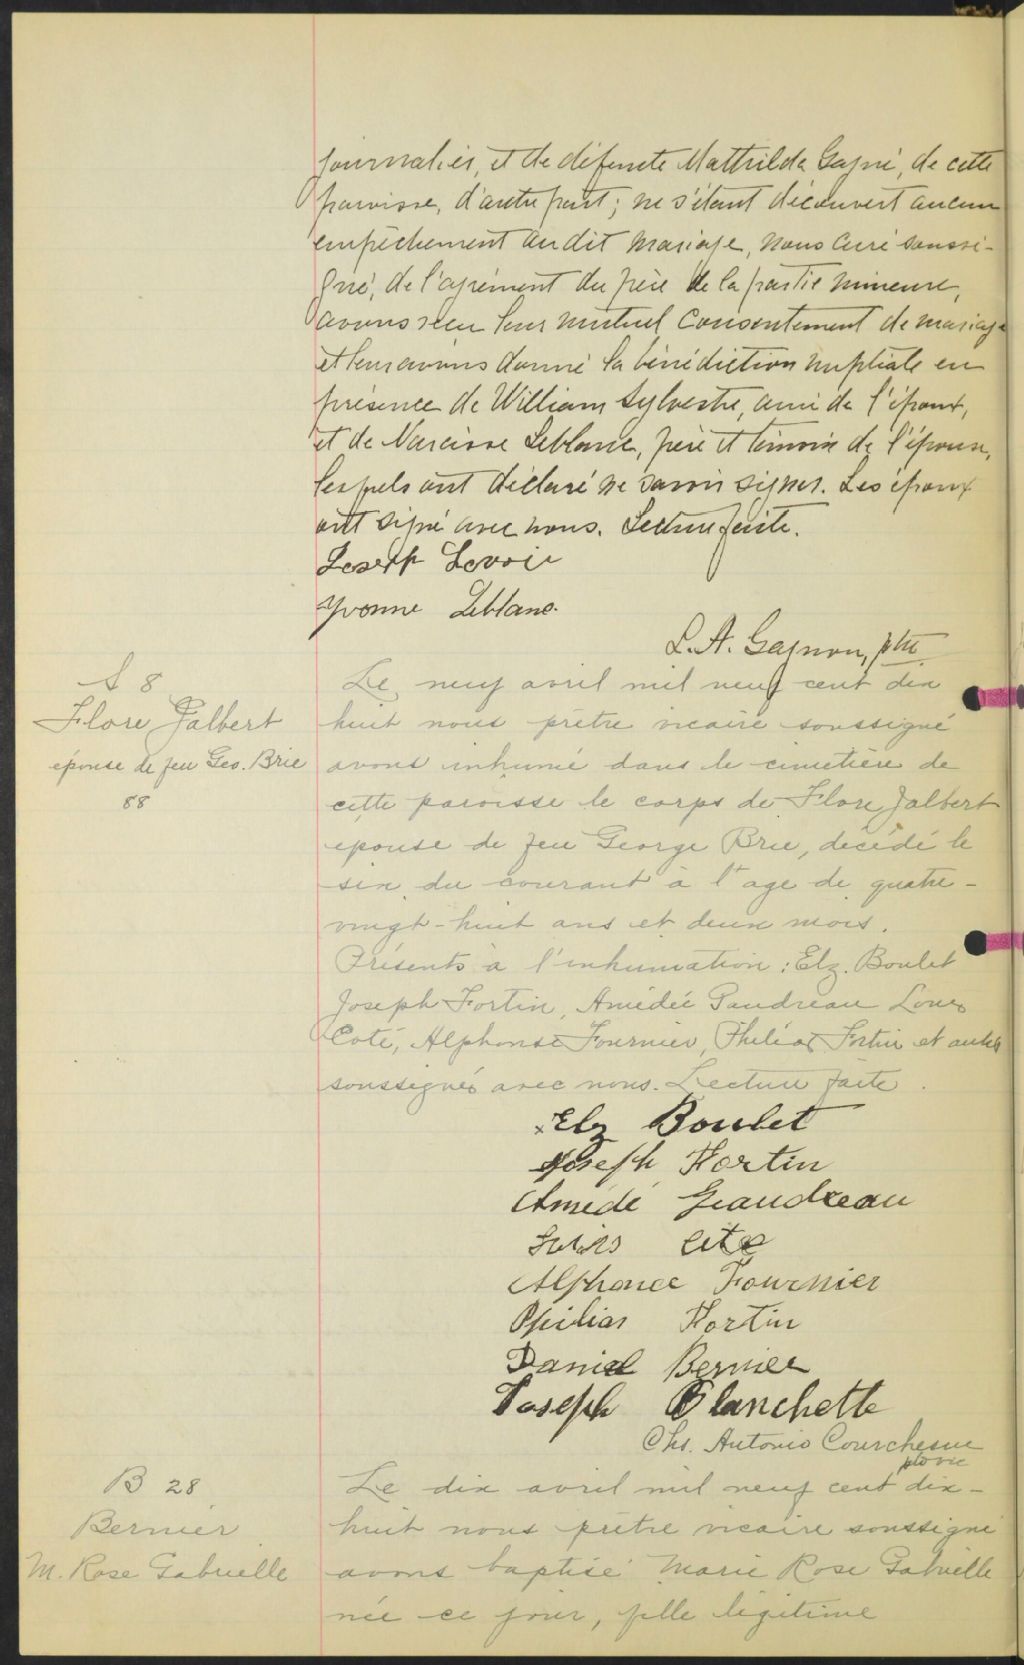 journalier, et de défunte Mathilda Gagné, de cette
paroisse, d'autre part; ne s'étant découvert aucun
empêchement au dit mariage, nous curé soussi-
gné, de l'agrément du père de la partie mineure,
avons reçu leur mutuel consentement de mariage
et leur avons donné la bénédiction nuptiale en
présence de William Sylvestre, ami de l'époux,
et de Narcisse Leblanc, père et témoin de l'épouse,
lesquels ont déclaré ne savoir signer. Les époux
ont signé avec nous. Lecture faite.
Joseph Savoie
Yvonne Leblanc.
L. A. Gagnon, ptre
S 8
Flore Jalbert
épouse de feu Geo. Brie
88
Le neuf avril mil neuf cent dix
huit nous prêtre vicaire soussigné
avons inhumé dans le cimetière de
cette paroisse le corps de Flore Jalbert
epouse de feu George Brie, décédé le
six du courant à l'age de quatre-
vingt-huit ans et deux mois.
Présents à l'inhumation: Elz. Boulet
Joseph Fortin, Amédée Gaudreau Louis
Coté, Alphonse Fournier, Philéas Fortin et autres
soussignés avec nous. Lecture faite.
x Elz Boulet
Joseph Fortin
Amédé Gaudreau
Alphonce Fournier
Philias Fortin
Daniel Bernier
Joseph Blanchette
Chs. Antonio Courchesne
ptre vic
B 28
Bernier
M. Rose Gabrielle
Le dix avril mil neuf cent dix-
huit nous prêtre vicaire soussigné
avons baptisé Marie Rose Gabrielle
née ce jour, fille légitime